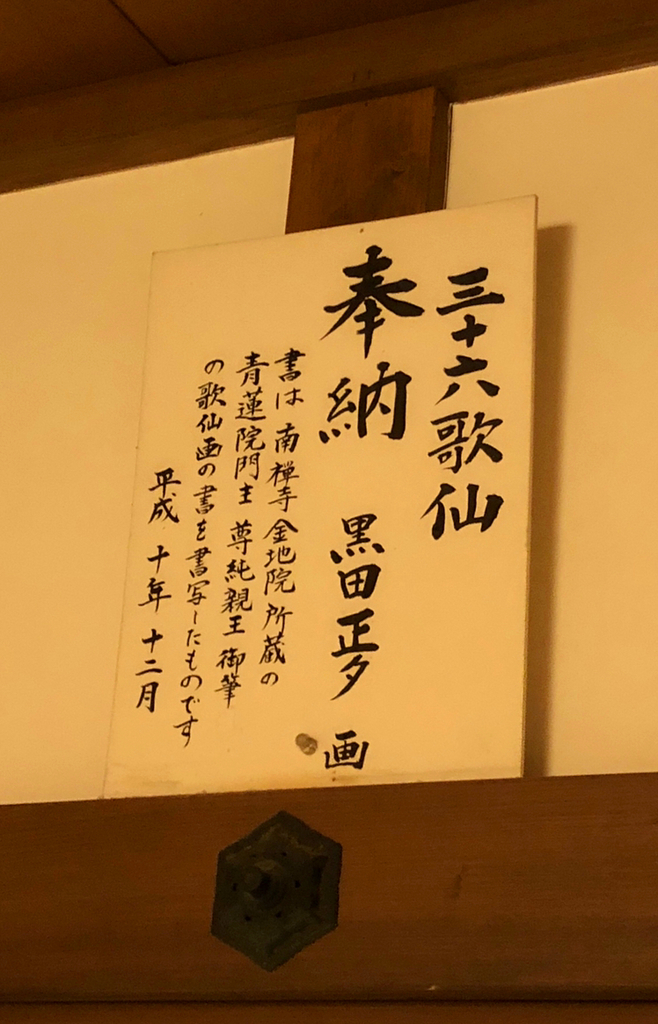 三十六歌仙
奉納 黒田正夕 画
書は南禅寺金地院所蔵の
青蓮院門主 尊純親王御筆
の歌仙画の書を書写したものです
平成十年十二月